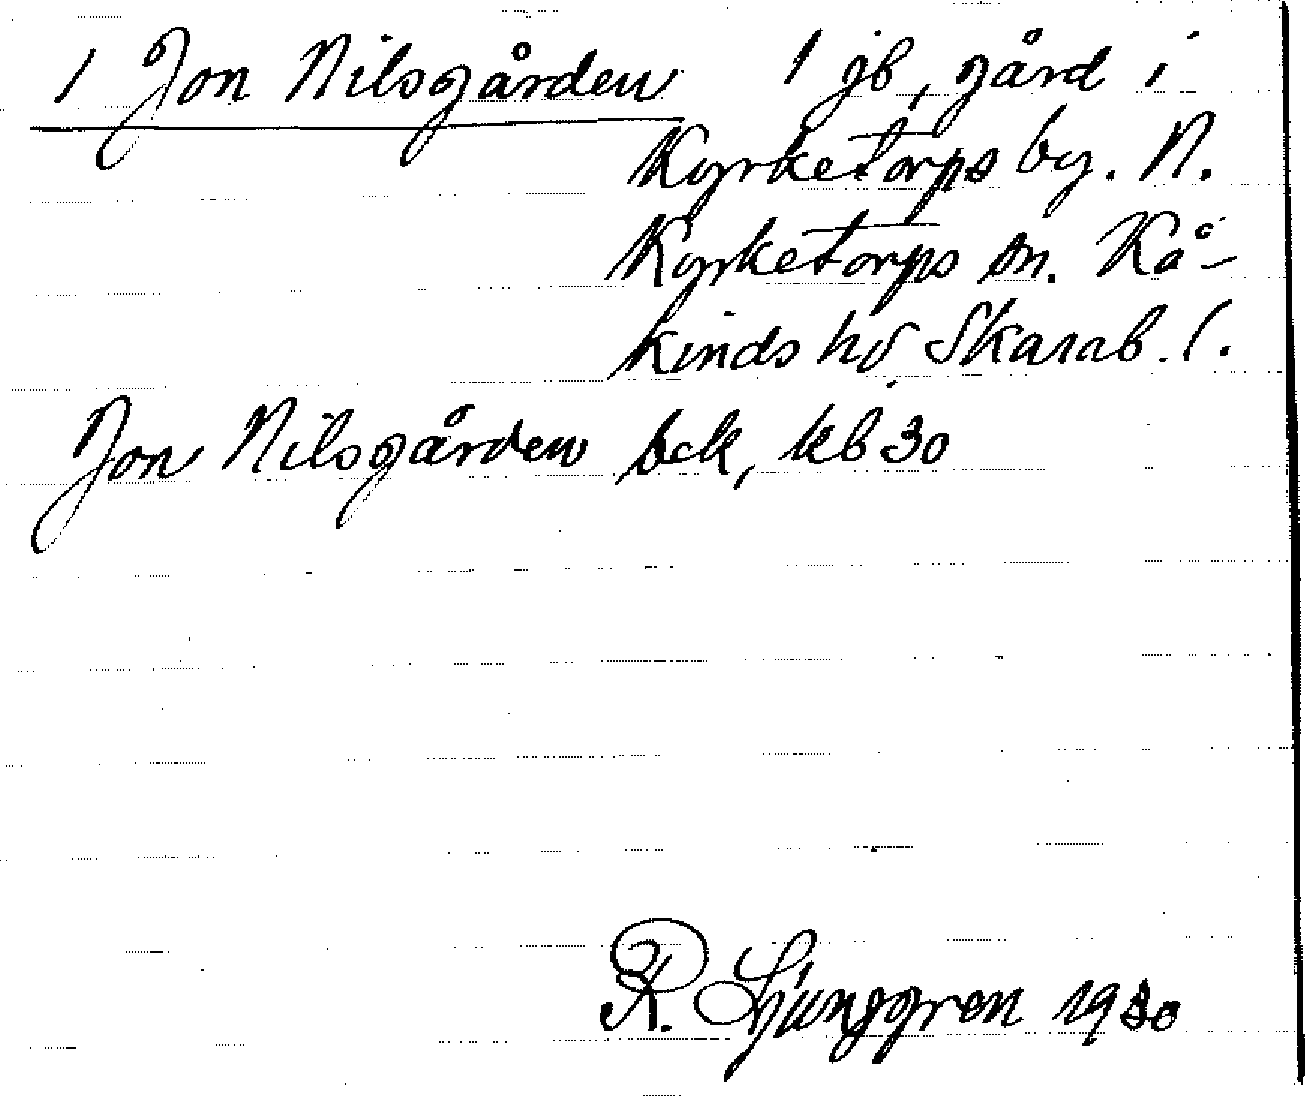 1 Jon Nilsgården 1 jb, gård i
Kyrketorps by. N.
Kyrketorps sn. Kå-
kinds hd Skarab. l.
Jon Nilsgården bck, kb 30
R. Ljunggren 1930